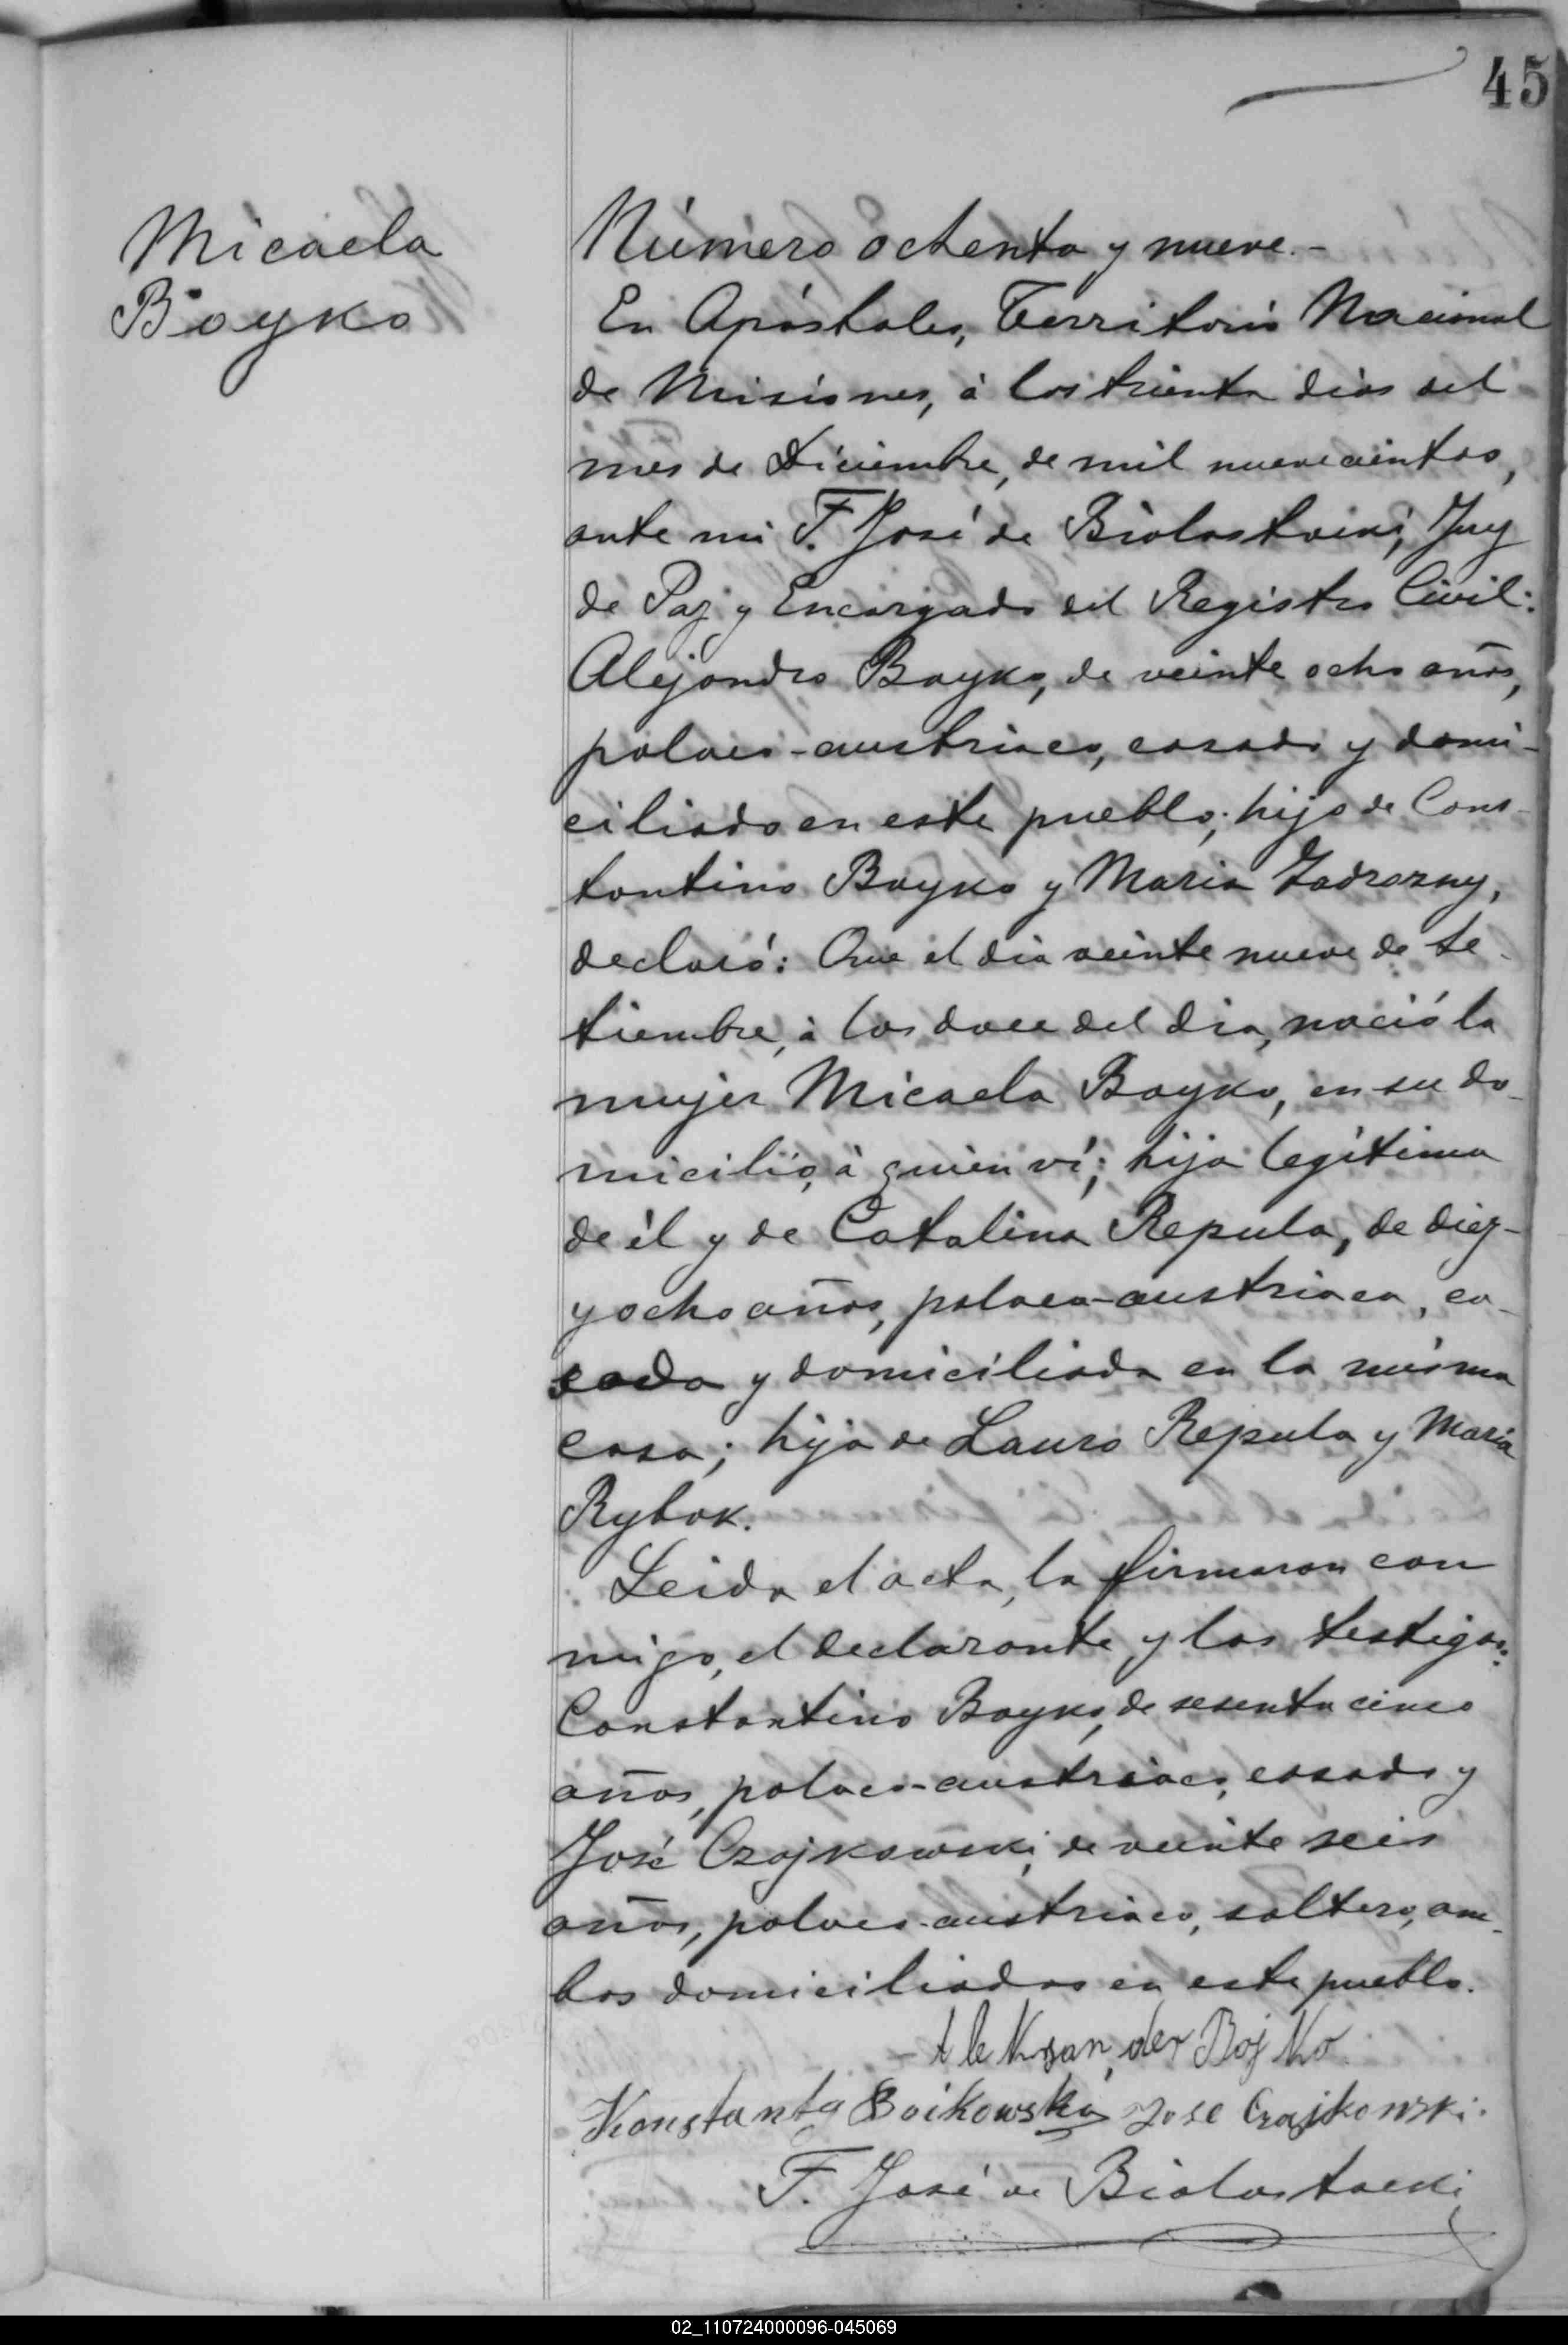 45
Micaela
Boyko
Número ochenta y nueve.-
En Apóstoles, Territorio Nacional
de Misiones, á los treinta dias del
mes de Diciembre, de mil nuevecientos,
ante mi F. José de Bialostocki, Juez
de Paz y Encargado del Registro Civil:
Alejandro Boyko, de veinte ocho años,
polaco-austriaco, casado y domi-
ciliado en este pueblo; hijo de Cons-
tantino Boyko y Maria Zadrozny,
declaró: Que el dia veinte nueve de Se-
tiembre, á las doce del dia, nació la
mujer Micaela Boyko, en su do-
micilio, á quien ví; hija legítima
de él y de Catalina Repula, de diez-
y ocho años, polaca-austriaca, ca-
sada y domiciliada en la misma
casa; hija de Lauro Repula y Maria
Rybak.
Leida el acta, la firmaron con
migo, el declarante y los testigos:
Constantino Boyko, de sesenta cinco
años, polaco-austriaco, casado y
José Czajkowski, de veinte seis
años, polaco-austriaco, soltero, am-
bos domiciliados en este pueblo.
Aleksander Bojko
Konstanty Boikowski Jose Czajkowski.
F. José de Bialostocki
02_110724000096-045069